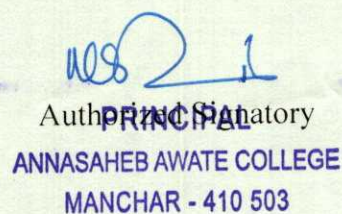 Authorized Signatory
PRINCIPAL
ANNASAHEB AWATE COLLEGE
MANCHAR - 410 503